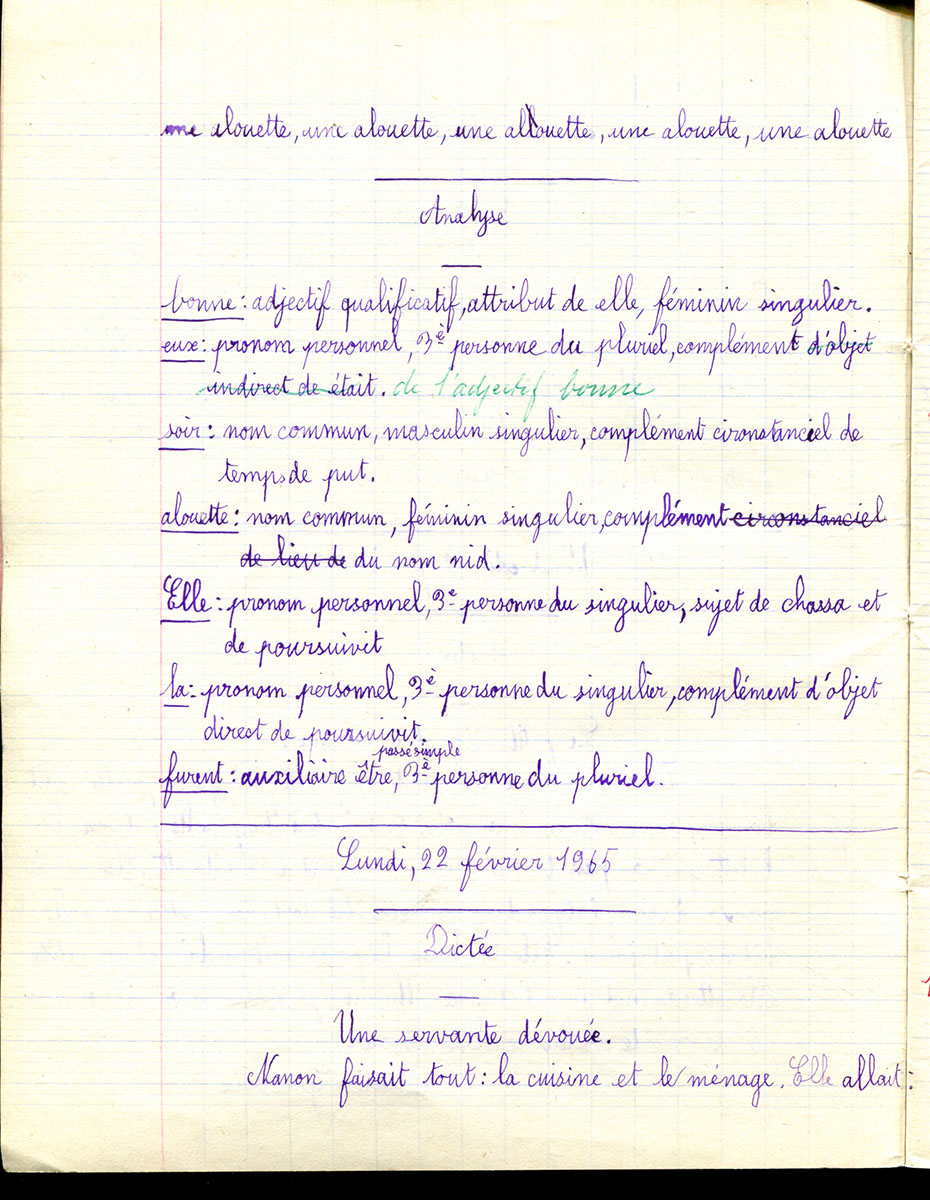 une alouette, une alouette, une allouette, une alouette, une alouette
Analyse
bonne : adjectif qualificatif, attribut de elle, féminin singulier.
eux : pronom personnel, 3è personne du pluriel, complément d'objet
indirect de était. de l'adjectif bonne
soir : nom commun, masculin singulier, complément cironstanciel de
temps de put.
alouette : nom commun, féminin singulier, complément circonstanciel
de lieu de du nom nid.
Elle : pronom personnel, 3e personne du singulier, sujet de chassa et
de poursuivit
la : pronom personnel, 3è personne du singulier, complément d'objet
direct de poursuivit.
passé simple
furent : auxiliaire être, 3è personne du pluriel.
Lundi, 22 février 1965
Dictée
Une servante dévouée.
Nanon faisait tout : la cuisine et le ménage. Elle allait :